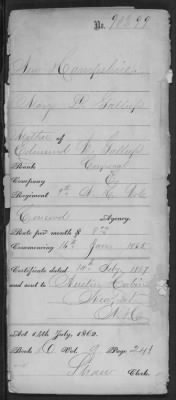 No. 98899
New Hampshire
Mary D. Gallup
Mother of
Edmund H. Gallup
Rank Corporal
Company E
Regiment 9th N. H. Vols
Concord Agency.
Rate per month $ 8 00
Commencing 16th June 1865
Certificate dated 10th July, 1867
and sent to
Newport
N.H.
Act 14th July, 1862.
Book D Vol. 9 Page 241
Shaw Clerk.